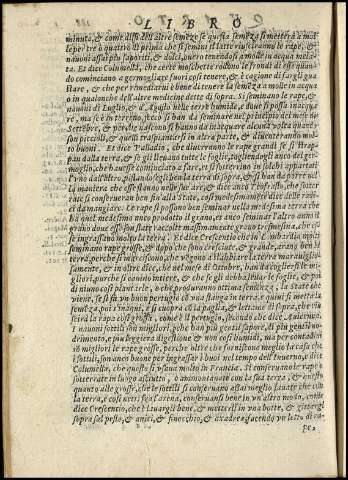 LIBRO
minuta, & come dissi dell'altre semeze se questa semesi metterà a mol
le per tre ò quattro dì prima che si semini il latte riusciranno le rape, &
nauoni assai piu saporiti, & dolci, puro tenendosi a molle in acqua mela
ta. Et dice Columella, che certe moschette rodono le frondi di esse quan
do cominciano a germogliare fuori così tenere, & è cagione di fargli gua
stare, & che per rimediarui è bene tenere la semenza a molle in acqua
o in qualcuna dell'altre medicine dette di sopra. Si seminano le rape, &
nauoni di Luglio, & d'Agosto nelle terre humide, doue si possa inacqua
re, ma se è in terreno, secco si han da seminare nel principio del mese di
Settembre, & perche nascono si hanno da inacquare alcuna volta quando
son piccioli, & questi traspiantarsi in altra parte, & diuenteranno mol
to buoni. Et dice Palladio, che diuerranno le rape grandi se si strap
pan dalla terra, & se gli leuano tutte le foglie, togliendogli anco del ger
moglio, che hauesse cominciato a fare, & si sotterrino in solchi appartati
l'vno dall'altro, pestandosegli ben la terra di sopra, & si han da porre nel
la maniera che esse stanno nelle sue are, & dice anco Teofrasto, che sotter
rate si conserueran ben fin alla State, cosi medesimamente dice delle radi
ci da mangiare. Le rape si possono ben seminar nella medesima terra che
ha quel medesimo anco prodotto il grano, et anco seminar l'altro anni il
grano doue esse son state raccolte massimamente grano tresmesina, che si
se ingrassano molto la terra. Et dice Crescentio che in Lombardia molti
seminano rape grosse, & dapoi che sono cresciute, & grande, arano ben la
terra, perche si marciscono, che vegono a stabbiare la terra marauiglio
samente, & in oltre dice, che nel mese di Ottobre, han da coglier si le mi
gliori, purche si cauino intere, & che se gli debbia leuar le foglie, & poi
di nuouo così piantarle, & che produranno ottima semenza, la State che
viene, se si fa vn buon pertugio co vna stanga in terra, e quiui si mette la
semenza, poi s'inaqui, & si cuopra con la paglia, & letame, & che riu-
scirà la rapa così grossa, come è il pertugio, secondo che dice Auicenna.
I nauoni sottili son migliori, pche han più gentil sapore, di piu gentil no-
drimento, e piu leggiera digestione & non così fumosi, ma per contadini
sō migliori le rape grosse, perche oltre che forniscono meglio la casa che
i sottili, son anco buone per ingrassar i buoi nel tempo dell'inuerno, e dice
Columella, che questo si vsaua molto in Francia. Si conseruano le rape o
sotterrate in luogo asciutto, o ammontonate con la sua terra, & questo
quanto alle grosse, che le sottili si conseruano assai meglio lauate che con
la terra, e così netti sega l'arena, conseruansi bene in vn altro modo, come
dice Crescentio, che lauargli bene, & mettersi in vna botte, & gittargli
sopra sal pesto, & anici, & finocchio, & exadrea, facendo vn letto di ra-
pe,